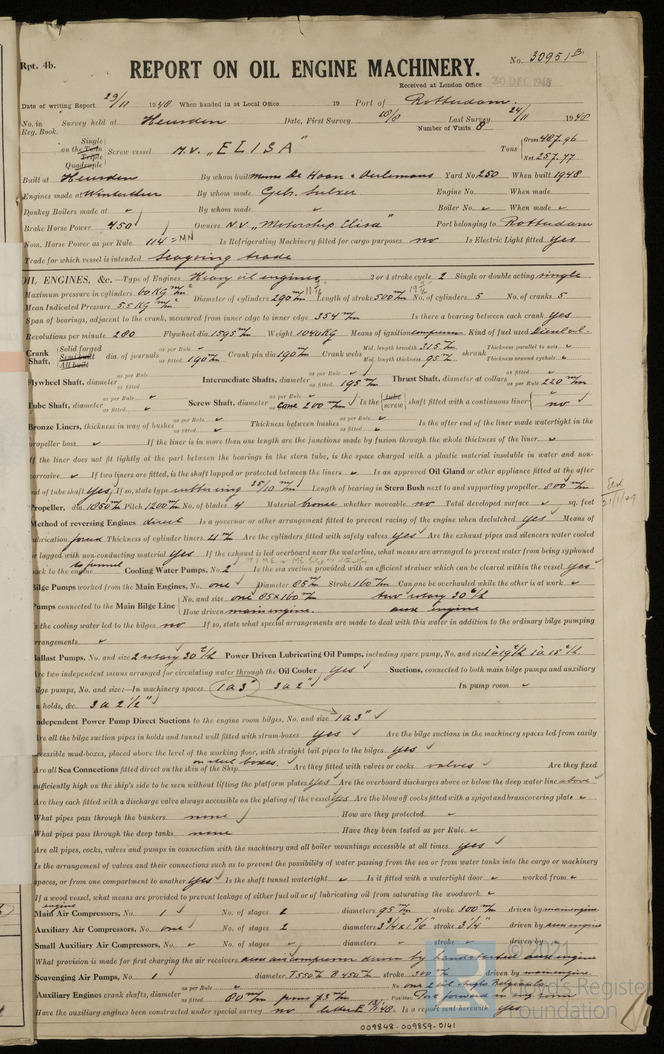 Rpt. 4b.
No. 30951 B
REPORT ON OIL ENGINE MACHINERY.
30 DEC 1948
Received at London Office
Date of writing Report 29/11 1948 When handed in at Local Office 19 Port of Rotterdam.
No. in Reg. Book. Survey held at Heusden Date, First Survey Last Survey 24/11 1948
Number of Visits 8
Single on the Twin Triple Quadruple Screw vessel M.V. "ELISA" Tons Gross 487.96 Net 257.77
Built at Heusden By whom built Messrs De Haan & Oerlemans Yard No. 250 When built 1948
Engines made at Winterthur By whom made Gebr. Sulzer Engine No. When made
Donkey Boilers made at By whom made Boiler No. When made
Brake Horse Power 450 Owners N.V. "Motorship Elisa" Port belonging to Rotterdam
Nom. Horse Power as per Rule 114 = MN Is Refrigerating Machinery fitted for cargo purposes no Is Electric Light fitted yes
Trade for which vessel is intended Seagoing trade
OIL ENGINES, &c. —Type of Engines Heavy oil engines 2 or 4 stroke cycle 2 Single or double acting single
Maximum pressure in cylinders 60 KG Diameter of cylinders 290 m/m Length of stroke 500 m/m No. of cylinders 5 No. of cranks 5
Mean Indicated Pressure 5.5 KG
Span of bearings, adjacent to the crank, measured from inner edge to inner edge 354 m/m Is there a bearing between each crank yes
Revolutions per minute 280 Flywheel dia. 1595 m/m Weight 1040 KG Means of ignition compression Kind of fuel used Diesel oil
Crank Shaft, Solid forged Semi built All built dia. of journals as per Rule as fitted 190 m/m Crank pin dia. 190 m/m Crank webs Mid. length breadth 315 m/m Mid. length thickness 95 m/m shrunk Thickness parallel to axis Thickness around eyehole
Flywheel Shaft, diameter as per Rule as fitted Intermediate Shafts, diameter as per Rule as fitted 195 m/m Thrust Shaft, diameter at collars as per Rule as fitted 220 m/m
Tube Shaft, diameter as per Rule as fitted Screw Shaft, diameter as per Rule as fitted cone 200 m/m Is the tube screw shaft fitted with a continuous liner no
Bronze Liners, thickness in way of bushes as per Rule as fitted Thickness between bushes as per Rule as fitted Is the after end of the liner made watertight in the
propeller boss If the liner is in more than one length are the junctions made by fusion through the whole thickness of the liner
If the liner does not fit tightly at the part between the bearings in the stern tube, is the space charged with a plastic material insoluble in water and non-
corrosive If two liners are fitted, is the shaft lapped or protected between the liners Is an approved Oil Gland or other appliance fitted at the after
end of tube shaft yes If so, state type Length of bearing in Stern Bush next to and supporting propeller 800 m/m
Propeller, dia. 1850 m/m Pitch 1200 m/m No. of blades 4 Material bronze whether moveable no Total developed surface sq. feet
Method of reversing Engines direct Is a governor or other arrangement fitted to prevent racing of the engine when declutched yes Means of
lubrication forced Thickness of cylinder liners Are the cylinders fitted with safety valves yes Are the exhaust pipes and silencers water cooled
or lagged with non-conducting material yes If the exhaust is led overboard near the waterline, what means are arranged to prevent water from being syphoned
back to the engine to funnel Cooling Water Pumps, No. 2 Is the sea suction provided with an efficient strainer which can be cleared within the vessel yes
Bilge Pumps worked from the Main Engines, No. one Diameter 85 m/m Stroke 160 m/m Can one be overhauled while the other is at work
Pumps connected to the Main Bilge Line No. and size one 85 x 160 m/m two rotary 30
How driven main engine. aux engine
Is the cooling water led to the bilges no If so, state what special arrangements are made to deal with this water in addition to the ordinary bilge pumping
arrangements
Ballast Pumps, No. and size 2 rotary 30 Power Driven Lubricating Oil Pumps, including spare pump, No. and size
Are two independent means arranged for circulating water through the Oil Cooler yes Suctions, connected to both main bilge pumps and auxiliary
bilge pumps, No. and size:—In machinery spaces 1 a 3" 3 a 2" In pump room
In holds, &c. 3 a 2 1/2"
Independent Power Pump Direct Suctions to the engine room bilges, No. and size 1 a 3"
Are all the bilge suction pipes in holds and tunnel well fitted with strum-boxes yes Are the bilge suctions in the machinery spaces led from easily
accessible mud-boxes, placed above the level of the working floor, with straight tail pipes to the bilges yes
Are all Sea Connections fitted direct on the skin of the Ship on steel boxes. Are they fitted with valves or cocks valves Are they fixed
sufficiently high on the ship's side to be seen without lifting the platform plates yes Are the overboard discharges above or below the deep water line above
Are they each fitted with a discharge valve always accessible on the plating of the vessel yes Are the blow off cocks fitted with a spigot and brass covering plate
What pipes pass through the bunkers none How are they protected
What pipes pass through the deep tanks none Have they been tested as per Rule
Are all pipes, cocks, valves and pumps in connection with the machinery and all boiler mountings accessible at all times yes
Is the arrangement of valves and their connections such as to prevent the possibility of water passing from the sea or from water tanks into the cargo or machinery
spaces, or from one compartment to another yes Is the shaft tunnel watertight Is it fitted with a watertight door worked from
If a wood vessel, what means are provided to prevent leakage of either fuel oil or of lubricating oil from saturating the woodwork
Main Air Compressors, No. 1 No. of stages 2 diameters 95 m/m stroke 300 m/m driven by main engine
Auxiliary Air Compressors, No. one No. of stages 2 diameters stroke 3 1/4" driven by aux engine
Small Auxiliary Air Compressors, No. No. of stages diameters stroke driven by
What provision is made for first charging the air receivers aux air compressor driven by hand started aux engine
Scavenging Air Pumps, No. 1 diameter stroke 300 m/m driven by main engine
Auxiliary Engines crank shafts, diameter as per Rule as fitted 80 m/m pins 73 m/m No. one Position Port forward in eng room
Have the auxiliary engines been constructed under special survey no Is a report sent herewith yes
© 2021
Lloyd's Register
Foundation
009848-009859-0141